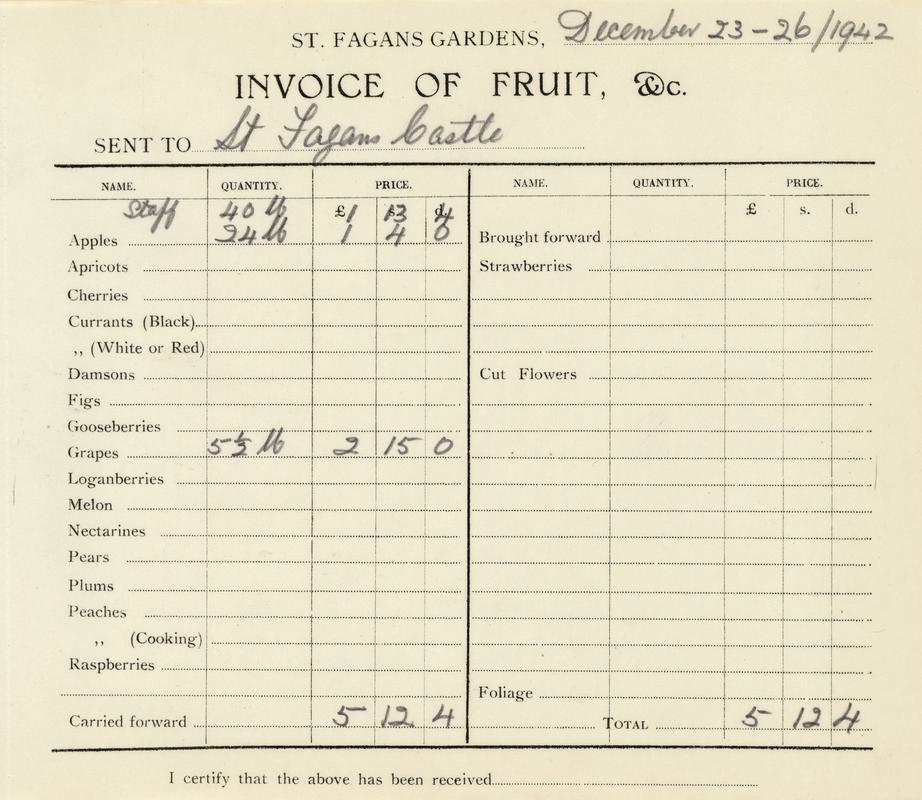 ST. FAGANS GARDENS, December 23-26/1942
INVOICE OF FRUIT, &c.
SENT TO St Fagans Castle
NAME. QUANTITY. PRICE. NAME. QUANTITY. PRICE.
£ s. d. £ s. d.
Staff 40 lb 1 13 4
Apples 24 lb 1 4 0 Brought forward
Apricots Strawberries
Cherries
Currants (Black)
,, (White or Red)
Damsons Cut Flowers
Figs
Gooseberries
Grapes 5½ lb 2 15 0
Loganberries
Melon
Nectarines
Pears
Plums
Peaches
,, (Cooking)
Raspberries
Foliage
Carried forward 5 12 4 TOTAL 5 12 4
I certify that the above has been received